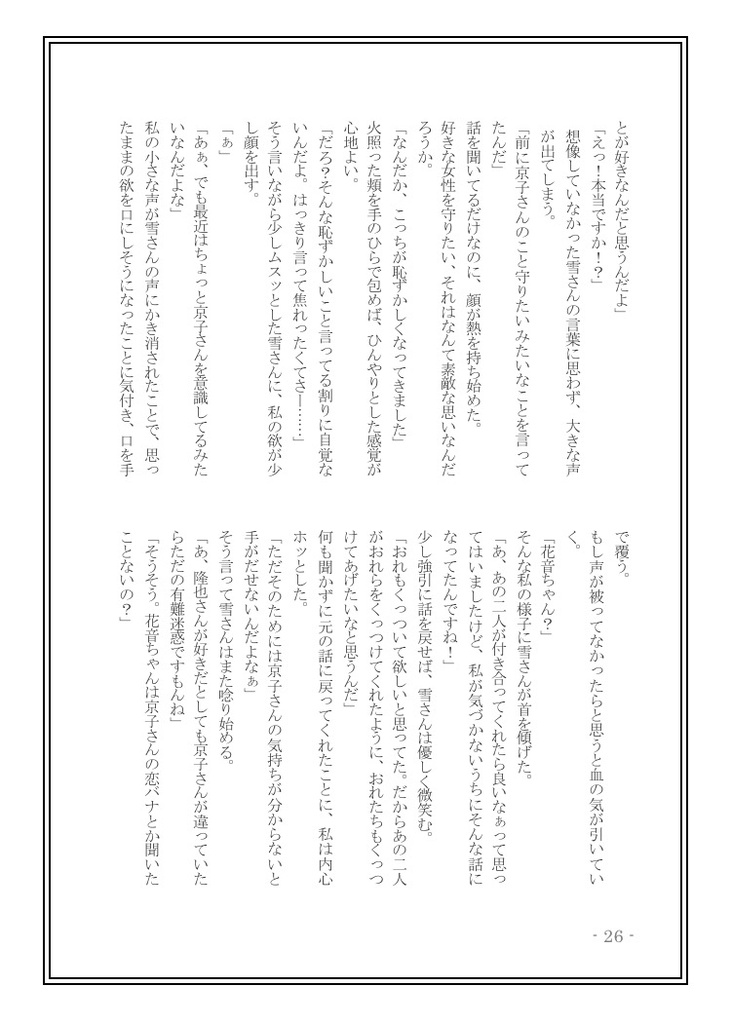 とが好きなんだと思うんだよ」
「えっ！本当ですか！？」
想像していなかった雪さんの言葉に思わず、大きな声
が出てしまう。
「前に京子さんのこと守りたいみたいなことを言って
たんだ」
話を聞いてるだけなのに、顔が熱を持ち始めた。
好きな女性を守りたい、それはなんて素敵な思いなんだ
ろうか。
「なんだか、こっちが恥ずかしくなってきました」
火照った頬を手のひらで包めば、ひんやりとした感覚が
心地よい。
「だろ？そんな恥ずかしいこと言ってる割りに自覚な
いんだよ。はっきり言って焦れったくてさー……」
そう言いながら少しムスッとした雪さんに、私の欲が少
し顔を出す。
「ぁ」
「あぁ、でも最近はちょっと京子さんを意識してるみた
いなんだよな」
私の小さな声が雪さんの声にかき消されたことで、思っ
たままの欲を口にしそうになったことに気付き、口を手
で覆う。
もし声が被ってなかったらと思うと血の気が引いてい
く。
「花音ちゃん？」
そんな私の様子に雪さんが首を傾げた。
「あ、あの二人が付き合ってくれたら良いなぁって思っ
てはいましたけど、私が気づかないうちにそんな話に
なってたんですね！」
少し強引に話を戻せば、雪さんは優しく微笑む。
「おれもくっついて欲しいと思ってた。だからあの二人
がおれらをくっつけてくれたように、おれたちもくっつ
けてあげたいなと思うんだ」
何も聞かずに元の話に戻ってくれたことに、私は内心
ホッとした。
「ただそのためには京子さんの気持ちが分からないと
手がだせないんだよなぁ」
そう言って雪さんはまた唸り始める。
「あ、隆也さんが好きだとしても京子さんが違っていた
らただの有難迷惑ですもんね」
「そうそう。花音ちゃんは京子さんの恋バナとか聞いた
ことないの？」
- 26 -